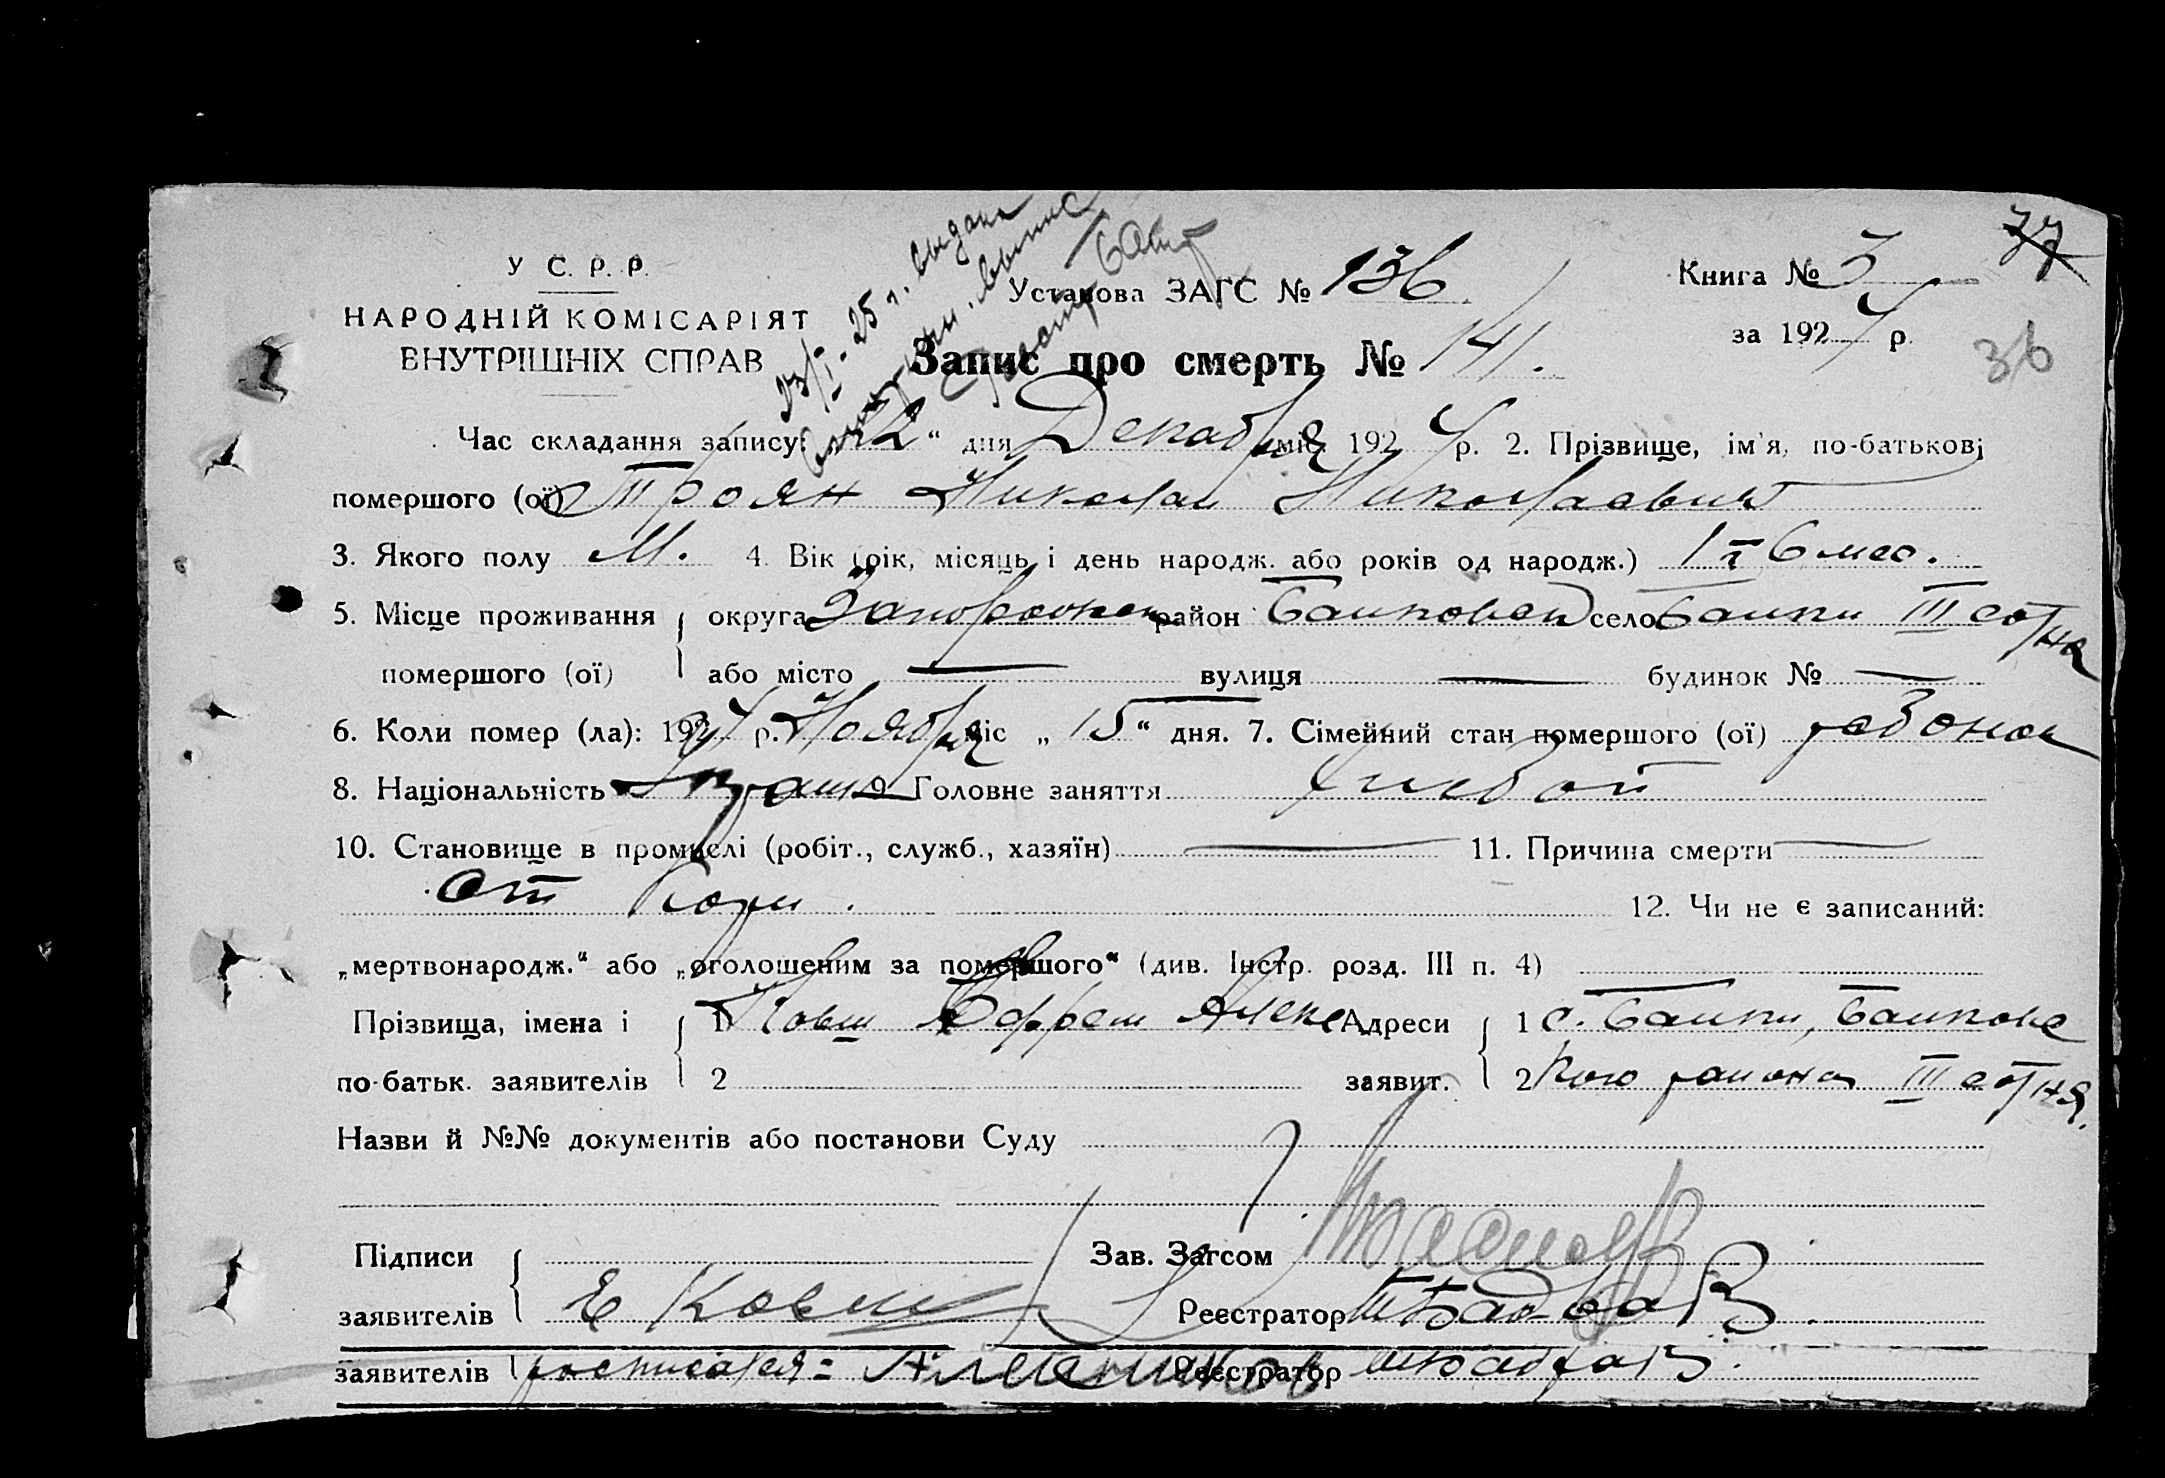 У С. Р. Р.
НАРОДНІЙ КОМІСАРІЯТ
ВНУТРІШНІХ СПРАВ
23/I-25 г. выдана
выпис
Установа ЗАГС № 136
Книга № 3
77
за 1924 р.
36
Запис про смерть № 141.
Час складання запису: 22 “ дня Декабря міс. 1924 р. 2. Прізвище, ім'я, по-батькові
помершого (ої) Троян Николай Николаевич
3. Якого полу М. 4. Вік (рік, місяць і день народж. або років од народж.) 1 г 6 мес.
5. Місце проживання округа Запорожск район Балковск село Балки III сотня
помершого (ої) або місто — вулиця — будинок № —
6. Коли помер (ла): 1924 р. Ноября міс „ 15 “ дня. 7. Сімейний стан помершого (ої) ребонок
8. Національність 9. Головне заняття
10. Становище в промислі (робіт., служб., хазяїн) — 11. Причина смерти —
от Кори. 12. Чи не є записаний:
„мертвонародж.“ або „оголошеним за помершого“ (див. Інстр. розд. III п. 4)
Прізвища, імена і 1 Ковш Ефрем Алекс Адреси 1 С. Балки, Балковс
по-батьк. заявителів 2 заявит. 2 кого района III сотня.
Назви й №№ документів або постанови Суду
Підписи Зав. Загсом
заявителів Е Ковш Реєстратор
заявителів росписался: Реєстратор